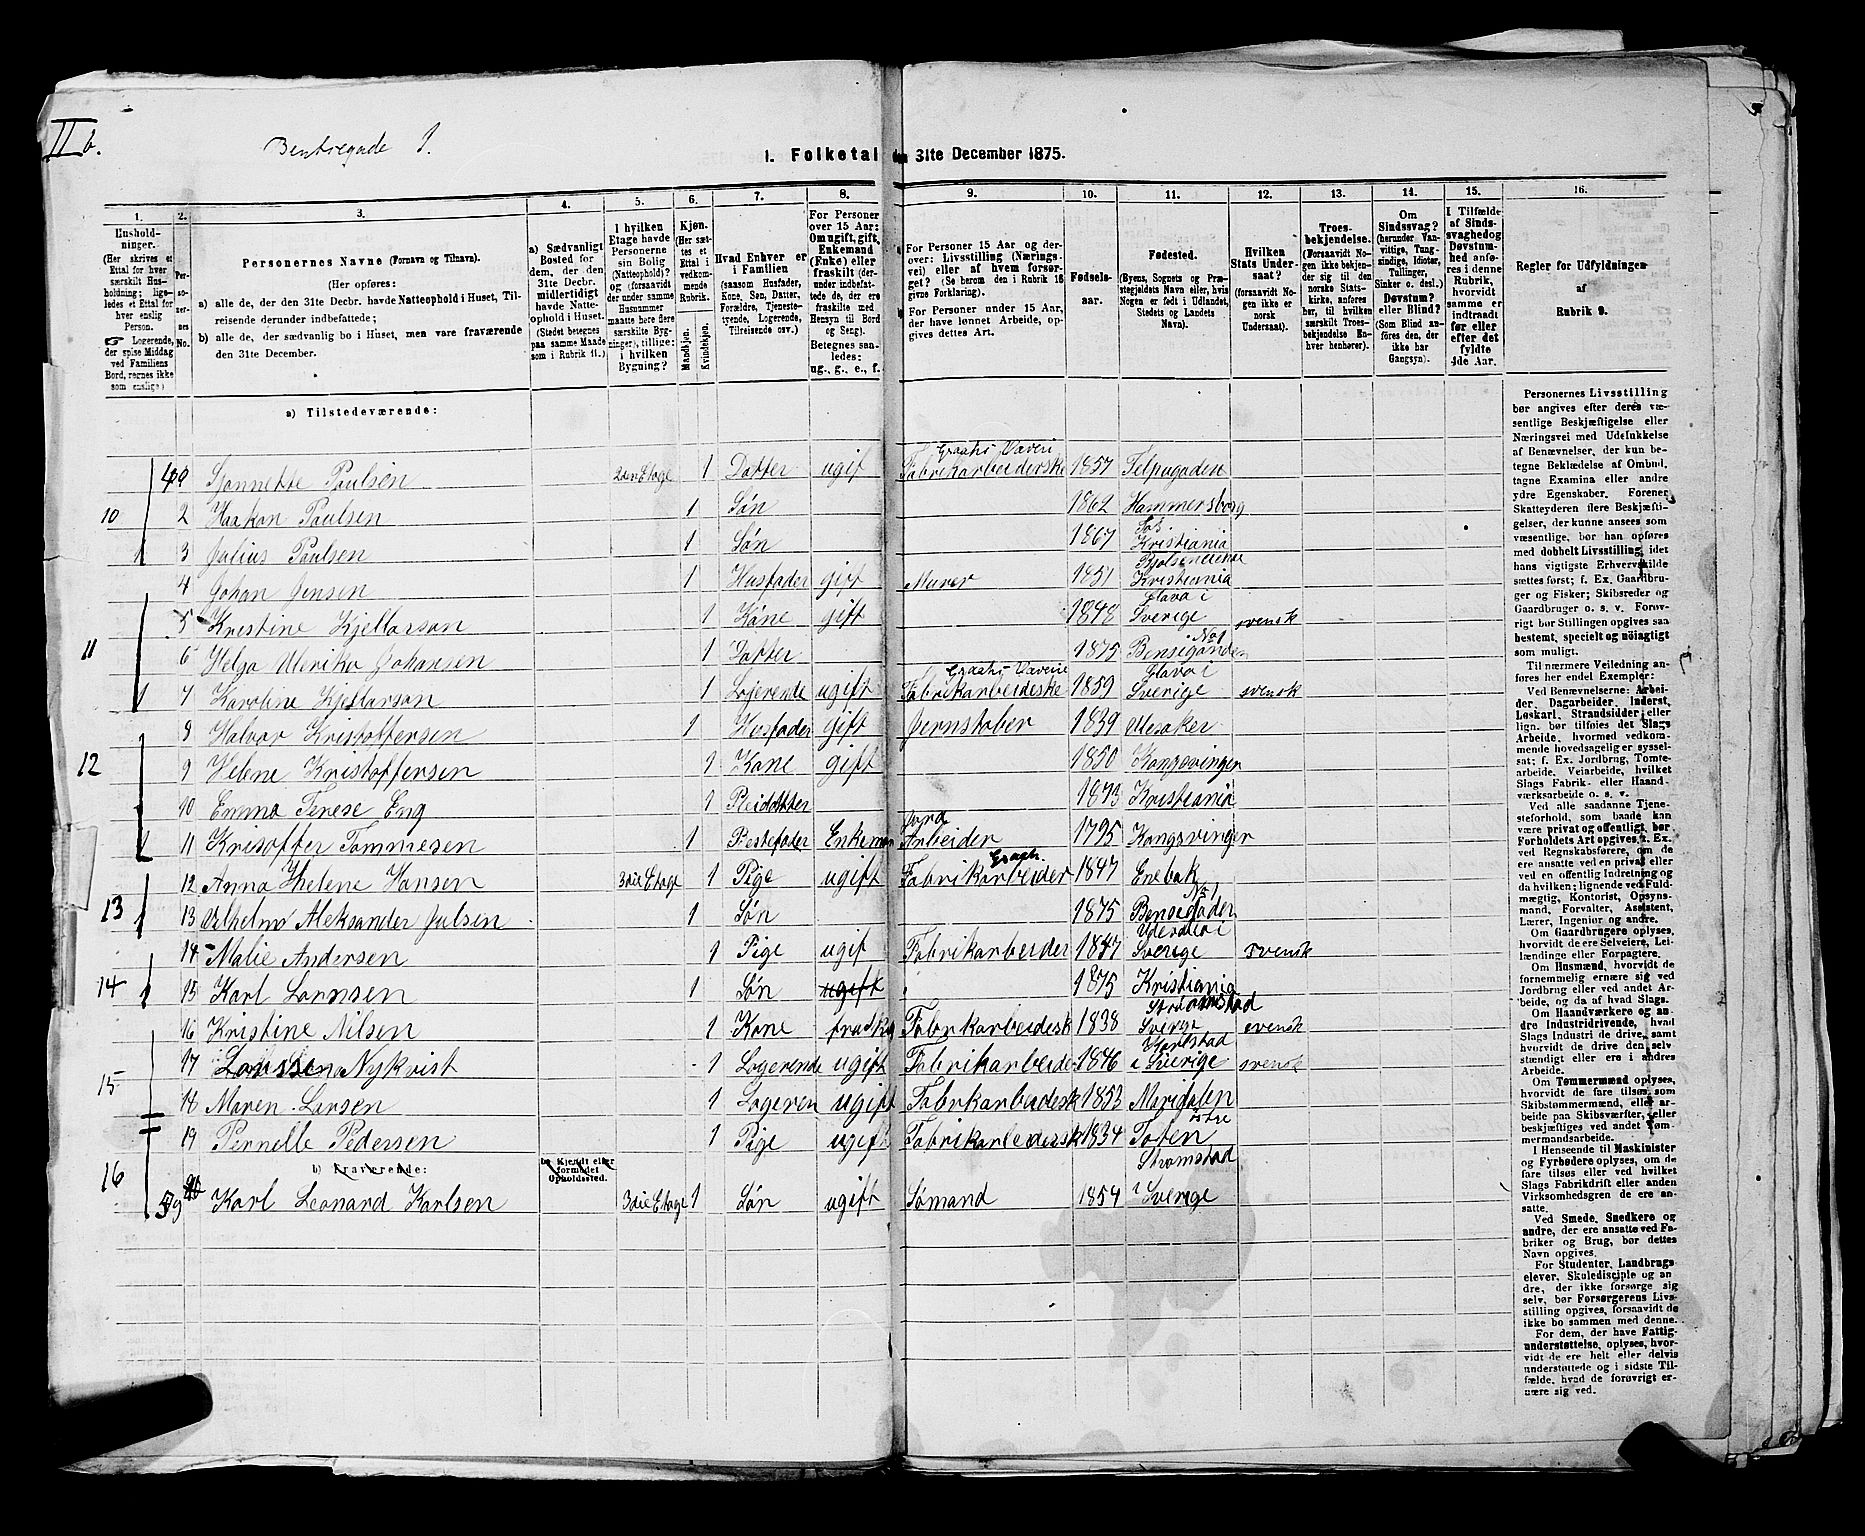 II b.
Bentsegade 1.
1. Folketal den 31te December 1875.
1. 2. 3. 4. 5. 6. 7. 8. 9. 10. 11. 12. 13. 14. 15. 16.
Husholdninger. (Her skrives et Ettal for hver særskilt Husholdning; ligeledes et Ettal for hver enslig Person. Logerende, der spise Middag ved Familiens Bord, regnes ikke som enslige.)
Personernes No.
Personernes Navne (Fornavn og Tilnavn).
(Her opføres:
a) alle de, der den 31te Decbr. havde Natteophold i Huset, Tilreisende derunder indbefattede;
b) alle de, der sædvanlig bo i Huset, men vare fraværende den 31te December.
a) Sædvanligt Bosted for dem, der den 31te Decbr. midlertidigt havde Natteophold i Huset. (Stedet betegnes paa samme Maade som i Rubrik 11.)
I hvilken Etage havde Personerne sin Bolig (Natteophold)? og (forsaavidt der under samme Husnummer maatte høre flere særskilte Bygninger), tillige: i hvilken Bygning?
Kjøn. (Her sættes et Ettal i vedkommende Rubrik. Mandkjøn. Kvindekjøn.
Hvad Enhver er i Familien (saasom Husfader, Kone, Søn, Datter, Forældre, Tjenestetyende, Logerende, Tilreisende osv.)
For Personer over 15 Aar: Om ugift, gift, Enkemand (Enke) eller fraskilt (derunder indbefattede de, der ere fraskilte med Hensyn til Bord og Seng). Betegnes saaledes: ug., g., e., f.
For Personer 15 Aar og derover: Livsstilling (Næringsvei) eller af hvem forsørget? (Se berom den i Rubrik 16 givne Forklaring).
For Personer under 15 Aar, der have lønnet Arbeide, opgives dettes Art.
Fødselsaar.
Fødested. (Byens, Sognets og Præstegjeldets Navn eller, hvis Nogen er født i Udlandet, Stedets og Landets Navn).
Hvilken Stats Undersaat? (forsaavidt Nogen ikke er norsk Undersaat).
Troesbekjendelse. (Forsaavidt Nogen ikke bekjender sig til den norske Statskirke, anføres her, til hvilken særskilt Troesbekjendelse Enhver henhører).
Om Sindssvag? (herunder Vanvittige, Tungsindige, Idioter, Tullinger, Sinker o. desl.) Døvstum? eller Blind? (Som Blind anføres den, der ikke har Gangsyn).
I Tilfælde af Sindssvaghed og Døvstumhed anføres i denne Rubrik, hvorvidt samme er indtraadt før eller efter det fyldte 4de Aar.
Regler for Udfyldningen af Rubrik 9.
a) Tilstedeværende:
Jannette Paulsen 2den Etage 1 Datter ugif Graahs Væveri Fabrikarbeiderske 1857
10 2 Haakon Paulsen 1 Søn 1862 Hammersborg
1 3 Julius Paulsen 1 Søn 1867 Kristiania
4 Johan Jensen 1 Husfader gift Murer 1851 Kristiania
5 Kristine Kjellarsan 1 Kone gift 1848 Glava i Sverige svensk
11 6 Helga Ulerike Johansen 1 Datter 1875 No 1
1 7 Karoline Kjellarson 1 Lojerende ugift Graahs Væverie Fabrikarbeideske 1859 Glava i Sverige svensk
8 Halvar Kristoffersen 1 Husfader gift Jernstøber 1839 Ulesaker
12 9 Helene Kristoffersen 1 Kone gift 1850 Kongsvinger
10 Emma Terese Eng 1 Pleidatter 1873 Kristiania
1 11 Krisoffer Tommesen 1 Bestefader Enkeman Jord Arbeider 1795 Kongsvinger
12 Anna Helene Hansen 3die Etage 1 Pige ugift Graah. Fabrikarbeider 1847 Enebak
13 1 13 Vilhelm Aleksander Julsen 1 Søn 1875 No 1
14 Malie Andersen 1 Pige ugif Fabrikarbeider 1847 Sverige svensk
14 1 15 Karl Larnsen 1 Søn ugift 1875 Kristiania
16 Kristine Nilsen 1 Kone Fabrkarbeidesk 1838 Strømstad Sverge svensk
17 Nykvist 1 Logerende ugift Fabrikarbeide 1846 Karlstad i Sverige svensk
15 18 Maren Larsen 1 Logeren ugift Fabrkarbeidesk 1853 Maridalen
19 Pernelle Pedersen 1 Pige ugift Fabrikarbeidersk 1834 østre Toten
b) Fraværende:
b) Kjendt eller formodet Opholdssted.
16 Karl Leonard Karlsen 3die Etage 1 Søn ugift Sømand 1854 Strømstad i Sverige
Personernes Livsstilling
bør angives efter deres væ-
sentlige Beskjæftigelse eller
Næringsvei med Udelukkelse
af Benævnelser, der kun be-
tegne Beklædelse af Ombud,
tagne Examina eller andre
ydre Egenskaber. Forener
Skatteyderen flere Beskjæfti-
gelser, der kunne ansees som
væsentlige, bør han opføres
med dobbelt Livsstilling, idet
hans vigtigste Erhvervskilde
sættes først; f. Ex. Gaardbru-
ger og Fisker; Skibsreder og
Gaardbruger o. s. v. Forøv-
rigt bør Stillingen opgives saa
bestemt, specielt og nöiagtigt
som muligt.
Til nærmere Veiledning an-
føres her endel Exempler:
Ved Benævnelserne: Arbei-
der, Dagarbeider, Inderst,
Løskarl, Strandsidder eller
lign. bør tilføies det Slags
Arbeide, hvormed vedkom-
mende hovedsagelig er syssel-
sat; f. Ex. Jordbrug, Tomte-
arbeide, Veiarbeide, hvilket
Slags Fabrik- eller Haand-
værksarbeide o. s. v.
Ved alle saadanne Tjene-
steforhold, som baade kan
være privat og offentligt, bør
Forholdets Art opgives, f. Ex.
ved Regnskabsførere, om de
ere ansatte ved en privat eller
ved en offentlig Indretning og
da hvilken; lignende ved Fuld-
mægtig, Kontorist, Opsyns-
mand, Forvalter, Assistent,
Lærer, Ingeniør og andre.
Om Gaardbrugere oplyses,
hvorvidt de ere Selveiere, Lei-
lændinge eller Forpagtere.
Om Husmænd, hvorvidt de
fornemmelig ernære sig ved
Jordbrug eller ved andet Ar-
beide, og da af hvad Slags.
Om Haandværkere og an-
dre Industridrivende, hvad
Slags Industri de drive, samt
hvorvidt de drive den selv-
stændigt eller ere i andres
Arbeide.
Om Tømmermænd oplyses,
hvorvidt de fare tilsøs som
Skibstømmermænd, eller ar-
beide paa Skibsværfter, eller
beskjæftiges ved andet Tøm-
mermandsarbeide.
I Henseende til Maskinister
og Fyrbødere oplyses, om de
fare tilsøs eller ved hvilket
Slags Fabrikdrift eller anden
Virksomhedsgren de ere an-
satte.
Ved Smede, Snedkere og
andre, der ere ansatte ved Fa-
briker og Brug, bør dettes
Navn opgives.
For Studenter, Landbrugs-
elever, Skoledisciple og an-
dre, der ikke forsørge sig
selv, bør Forsørgerens Livs-
stilling opgives, forsaavidt de
ikke bo sammen med denne.
For dem, der have Fattig-
understøttelse, oplyses, hvor-
vidt de ere helt eller delvis
understøttede og i sidste Til-
fælde, hvad de forøvrigt er-
nære sig ved.